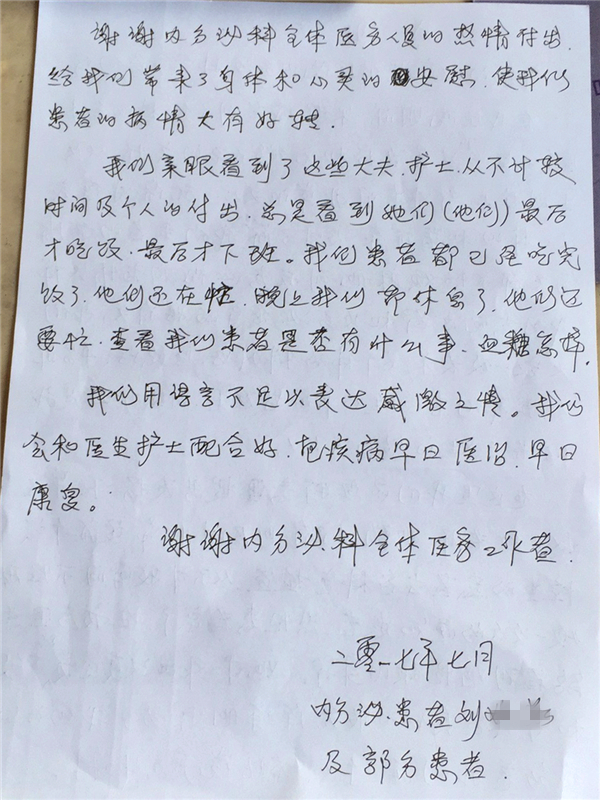 谢谢内分泌科全体医务人员的热情付出.
给我们带来了身体和心灵的安慰.使我们
患者的病情大有好转.
我们亲眼看到了这些大夫.护士.从不计较
时间及个人的付出.总是看到她们(他们)最后
才吃饭.最后才下班。我们患者都已经吃完
饭了.他们还在忙.晚上我们都休息了.他们还
要忙.查看我们患者是否有什么事.血糖怎样.
我们用语言不足以表达感激之情。我们
会和医生护士配合好.把疾病早日医治.早日
康复。
谢谢内分泌科全体医务工作者.
二零一七年七月
内分泌.患者刘
及部分患者.